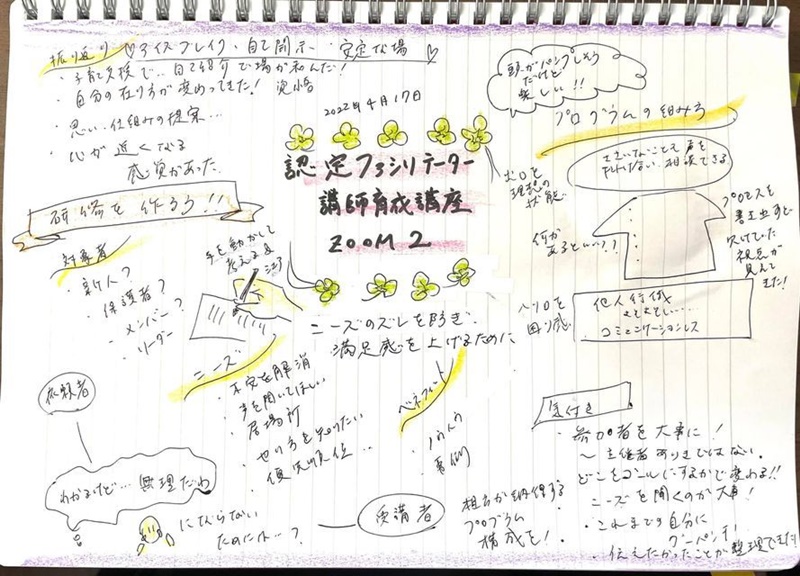 振り返り ♡アイスブレイク・自己開示・安定な場♡
・手放し支援で…自己紹介で場が和んだ!
・自分の在り方が変わってきた!
・思い・仕組みの提案…
・心が近くなる
感覚があった
研修を作ろう!!
対象者
・新人?
・保護者?
・メンバー?
・リーダー
2022年4月17日
認定ファシリテーター
講師育成講座
ZOOM 2
手を動かして
考える
ニーズのズレを防ぎ、
満足感を上げるために
ニーズ
・不安を解消
・声を聞いてほしい
・居場所
・やり方を知りたい
・優先順位…
ベネフィット
・ノウハウ
・事例
頭がパンクしそう
だけど
楽しい!!
プログラムの組み方
出口を
理想の
状態
ささいなことで声を
かけ合い 相談できる
何が
あるといい??
プロセスを
書き出すと
欠けていた
視点が
見えて
きた!
入り口を
困り感
他人行儀
よそよそしい……
コミュニケーションレス
依頼者
わかるけど… 無理だわ
にならない
ためには…?
受講者
相手が納得する
プログラム
構成を!
気付き
・参加者を大事に!
〜主催者ありきではない。
どこをゴールにするかで変わる!!
ニーズを聞くのが大事!
・これまでの自分に
グーパンチ!
・伝えたかったことが整理できた!